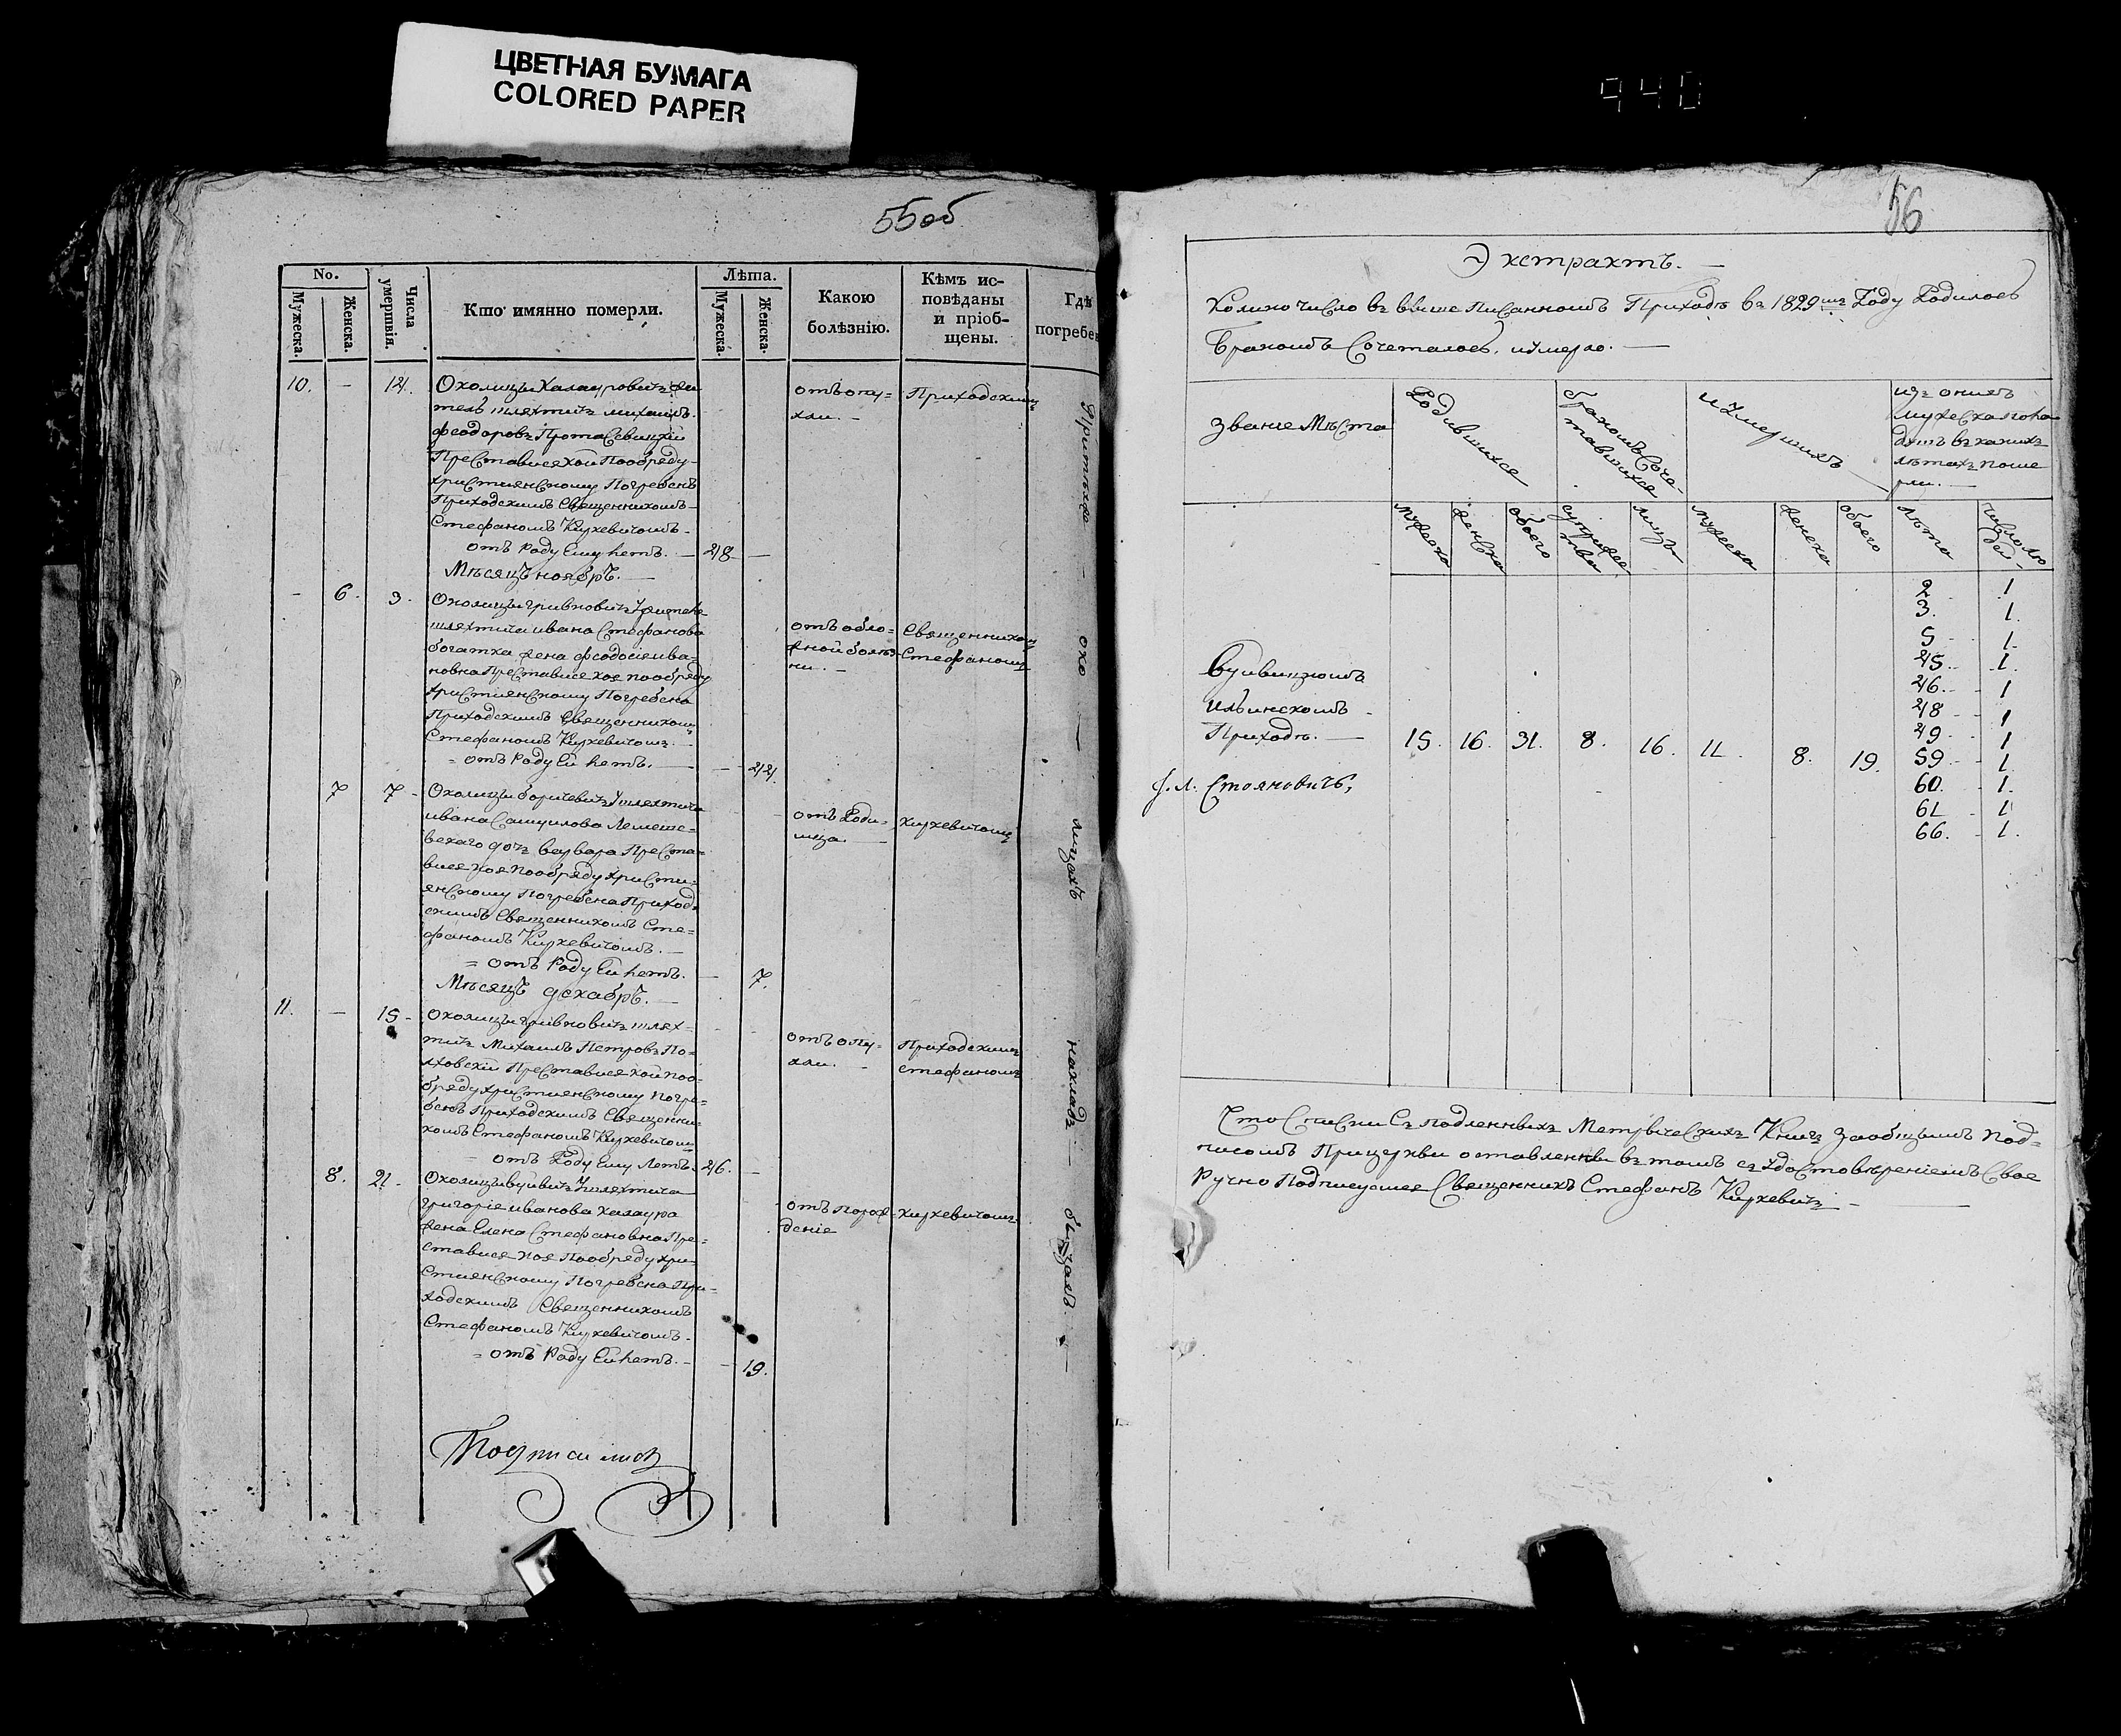 ЦВЕТНАЯ БУМАГА
COLORED PAPER
940
55об
No.
Мужеска.
Женска.
Числа умершія.
Кто имянно померли.
Лѣта.
Мужеска.
Женска.
Какою
болѣзнію.
Кѣмъ ис-
повѣданы
и пріоб-
щены.
Гдѣ
погребе
10. - 14. Околицы Халауровичъ жи
тель шляхтичъ михаилъ
феодоровъ
Преставися кой Пообряду
християнскому Погребенъ
Приходскимъ Священникомъ
Стефаномъ Кирхевичомъ.
отъ Роду Ему летъ. — 48 —
отъ опу-
хли. -
Приходскимъ
Мѣсяцъ ноябрь. —
- 6. 3. Околицы гривковичъ
шляхтича ивана Стефанова
богатка жена феодосія ива-
новна Преставися коя пообряду
християнскому Погребена
Приходскимъ Священникомъ
Стефаномъ Кирхевичомъ. —
= отъ Роду Ей летъ. — — 44.
отъ обло-
жной болѣз-
ни. -
Священникомъ
Стефаномъ
7 7 - Околицы боричевичъ шляхтича
ивана Самуилова Лемеше-
вскаго дочъ варвара Преста-
вися коя пообряду христи-
янскому Погребена Приход-
скимъ Священникомъ Сте-
фаномъ Кирхевичомъ. —
= отъ Роду Ей летъ. — 7.
отъ Роди-
мца. —
Кирхевичомъ
Мѣсяцъ декабрь. —
11. — 15 - околицы гривковичъ шлях-
тичъ Михаилъ Петровъ По-
лховскій Преставися кой поо-
бряду християнскому Погре-
бенъ Приходскимъ Священни-
комъ Стефаномъ Кирхевичомъ
отъ Роду Ему Летъ. 46. —
отъ опу-
хли. -
Приходскимъ
стефаномъ
8. 21 - Околицы вуивичъ шляхтича
григорія иванова Халаура
жена Елена Стефановна Пре-
ставися коя Пообряду хри-
стиянскому Погребена При-
ходскимъ Священникомъ
Стефаномъ Кирхевичомъ.
= отъ Роду Ей летъ. — — 19.
отъ Порож-
деніе
Кирхевичомъ
лицахъ
56
Экстрактъ. —
Колико число въ выше Писанномъ Приходѣ въ 1829мъ Году Родилось
Бракомъ Сочеталось, иумерло. —
Званіе Мѣста
Родившихся
бракомъ Соче-
тавшихся
иУмершихъ
изъ онихъ
мужеска
въ какихъ
лѣтахъ поме
рли. —
мужеска
женска
обоего
супруже
ства
лицъ
мужеска
женска
обоего
лѣта
число лю
дей
Вуивицкомъ
Ильинскомъ
Приходѣ. — 15. 16. 31. 8. 16. 11. 8. 19.
2 1
3. 1.
5 - 1.
45. 1.
46. - 1
48 - 1
49. - 1
59 - 1.
60. - 1.
61 - 1
66. - 1.
Стояновичъ,
Что Списки Съ подленныхъ Метрическихъ Книгъ Заобщимъ Под-
писомъ Прицеркви оставленны въ томъ съ Удостовѣреніемъ Свое
Ручно Подписуюся Священникъ Стефанъ Кирхевичъ —